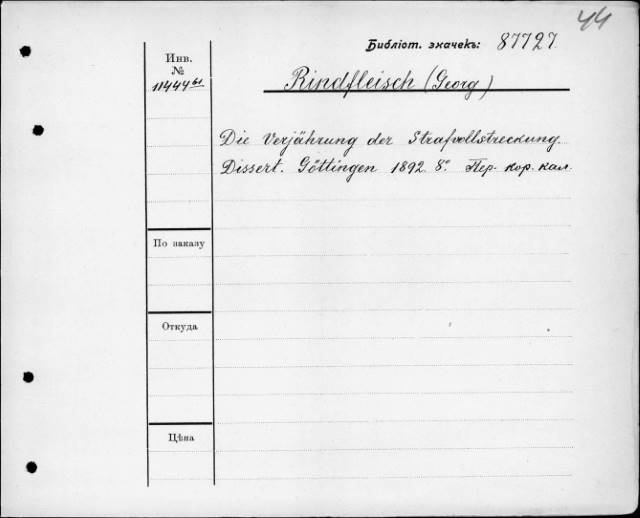 44
Библіот. значекъ: 87727.
Инв.
№
Rindfleisch (Georg)
Die Verjährung der Strafvollstreckung.
Dissert. Göttingen 1892. 8º. Пер. кор. кал.
По заказу
Откуда
Цѣна